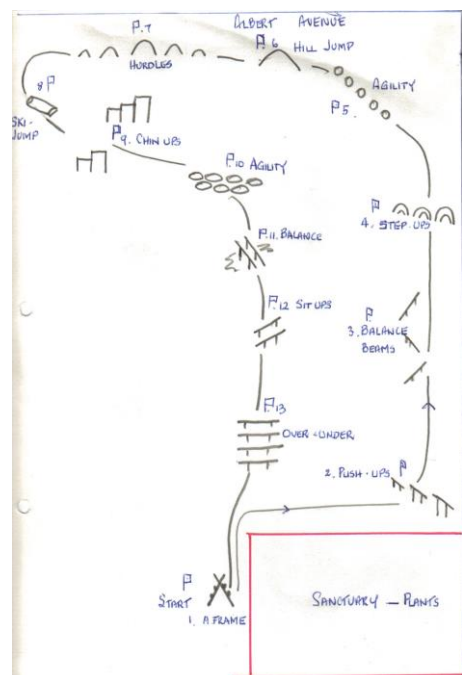 ALBERT AVENUE
P.7
HURDLES
P.6 HILL JUMP
AGILITY
P5.
8 P
SKI-
JUMP
P9. CHIN UPS
P.10 AGILITY
P
4. STEP-UPS
P.11. BALANCE
P.12 SIT UPS
P.
3. BALANCE
BEAMS
P.13
OVER-UNDER
2. PUSH-UPS P
P
START
1. A FRAME
SANCTUARY — PLANTS